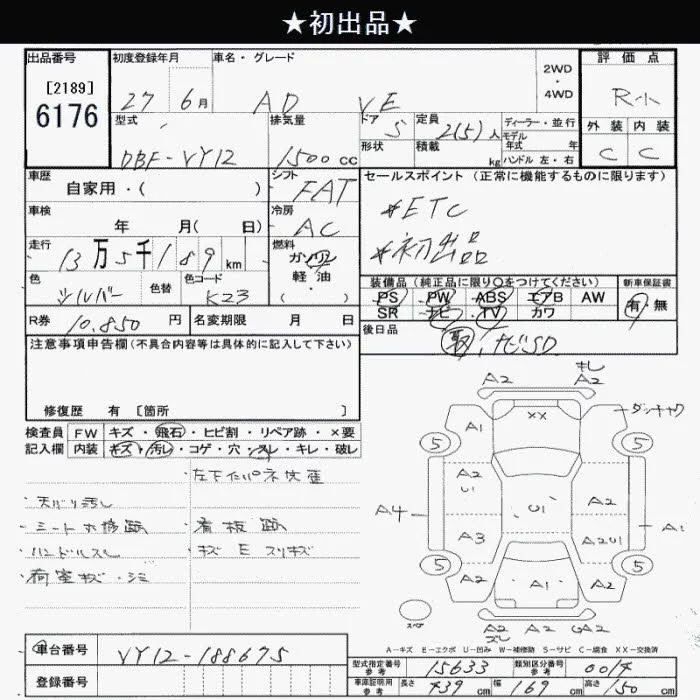 ★初出品★
出品番号 初度登録年月 車名・グレード 2WD・4WD 評価点
[2189]
6176
27 6月 AD VE R小
型式 排気量 ドア 定員 ディーラー・並行 外装 内装
DBF-VY12 1500cc 5 2(5)人 モデル年式 年 C C
形状 積載 kg ハンドル 左・右
車歴 シフト セールスポイント (正常に機能するものに限ります)
自家用・( ) FAT
*ETC
車検 冷房
年 月( 日) AC
*初出品
走行 燃料
13万5千189km ガソリン
軽油・( )
色 色替 色コード 装備品 (純正品に限り○をつけてください) 新車保証書
シルバー K23 PS PW ABS エアB AW 有・無
SR ナビ TV カワ
R券 10.850円 名変期限 月 日 後日品
取,ナビSD
注意事項申告欄(不具合内容等は具体的に記入して下さい)
修復歴 有 [箇所 ]
検査員 FW キズ・飛石・ヒビ割・リペア跡・×要
記入欄 内装 キズ・汚レ・コゲ・穴・スレ・キレ・破レ
・天バリ汚し
・シート
・看板跡
・ハンドルスレ
・キズ E スリキズ
・荷室キズ・
A2 A2
XX
A1
5 5
A2 U1 U1 A2
A4 A1
A3 A2U1
5 5
A2 A1 A2
A2 A2
スペア
A-キズ E-エクボ U-凹み W-補修跡 S-サビ C-腐食 XX-交換済
車台番号 VY12-188675
登録番号
型式指定番号 参考 15633 類別区分番号 参考 0014
車庫証明用 参考 長さ 439cm 幅 169cm 高さ 150cm